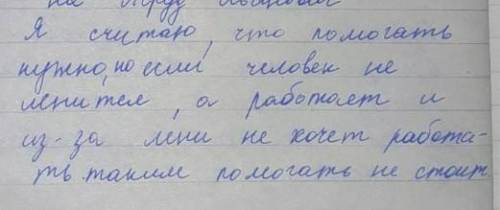 на
Я считаю, что помогать
нужно, но если человек не
ленится, а работает и
из-за лени не хочет работа-
ть таким помогать не стоит